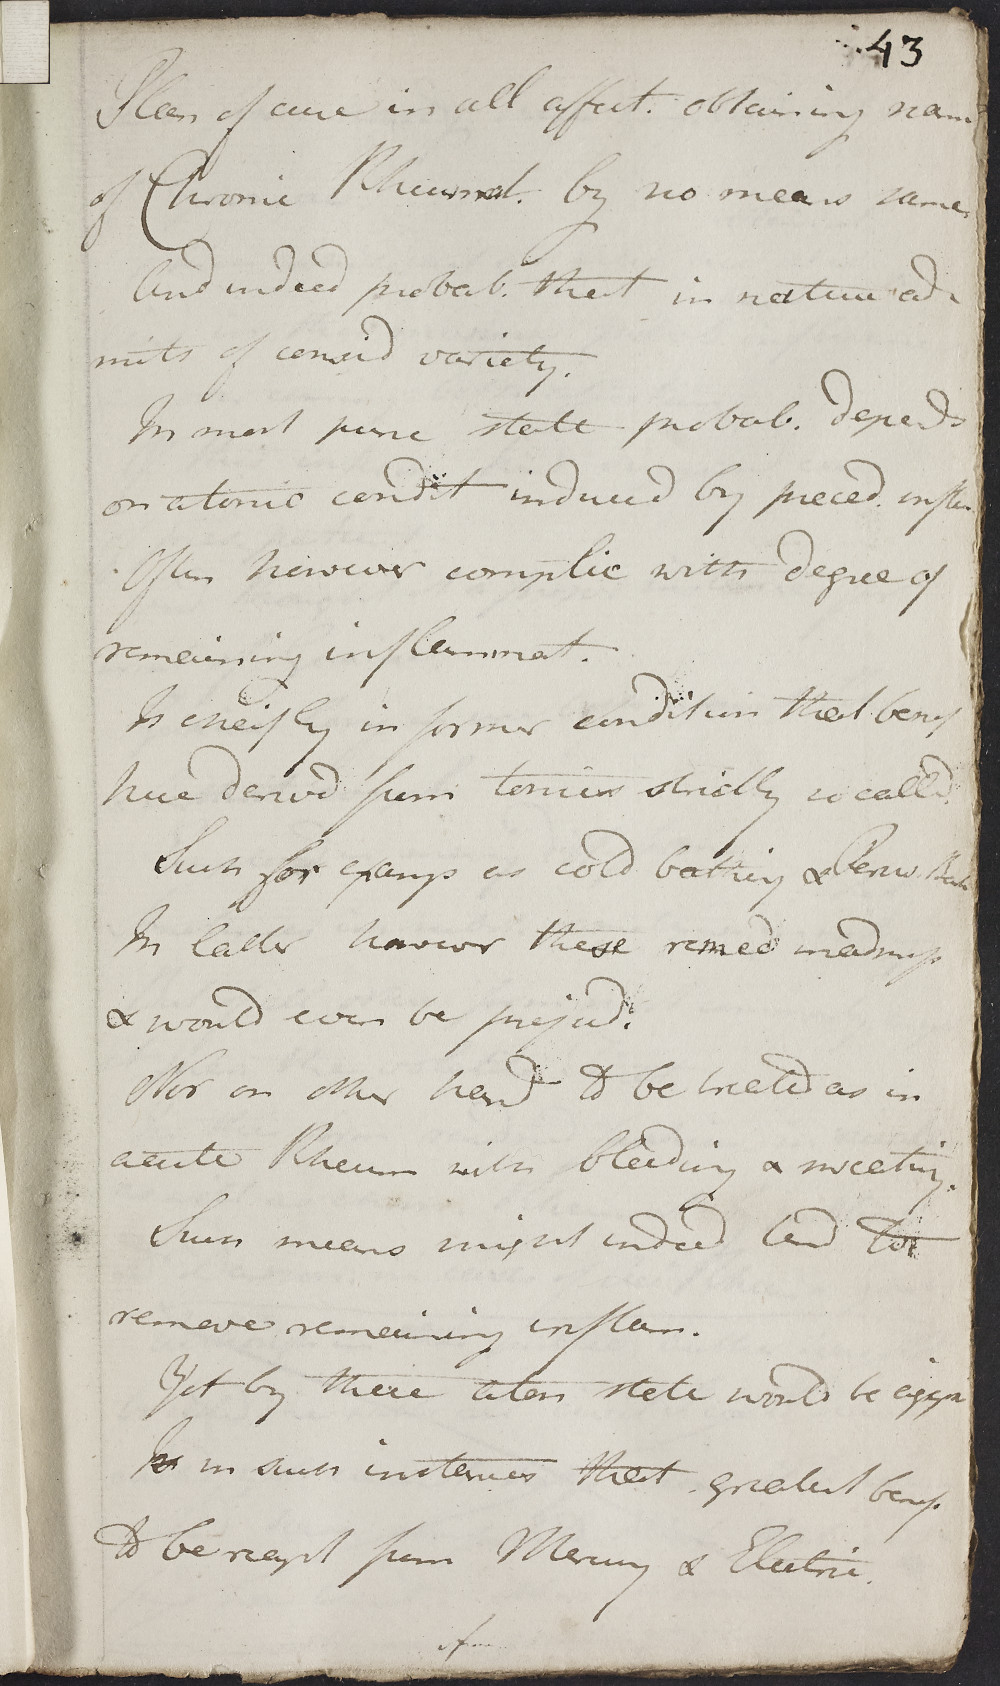 43
Plan of cure in all affect. obtaining name
of Chronic Rheumat. by no means same
And indeed probab. that in nature ad-
mits of consid variety.
In most pure state probab. depends
on atonic condit induced by preced. inflam
Often however complic with degree of
remaining inflammat.
Is cheifly in former condition that benef
here derivd from tonics strictly so calld.
Such for examp as cold bathing & Peruv. Bark
In latter however these remed inadmiss
& would even be prejud.
Nor on other hand to be treated as in
acute Rheum with bleeding & sweating.
Such means might indeed tend to
remove remaining inflam.
Yet by these aton state would be aggra
Is in such instances that greatest benef.
to be expect from Mercury & Electric.